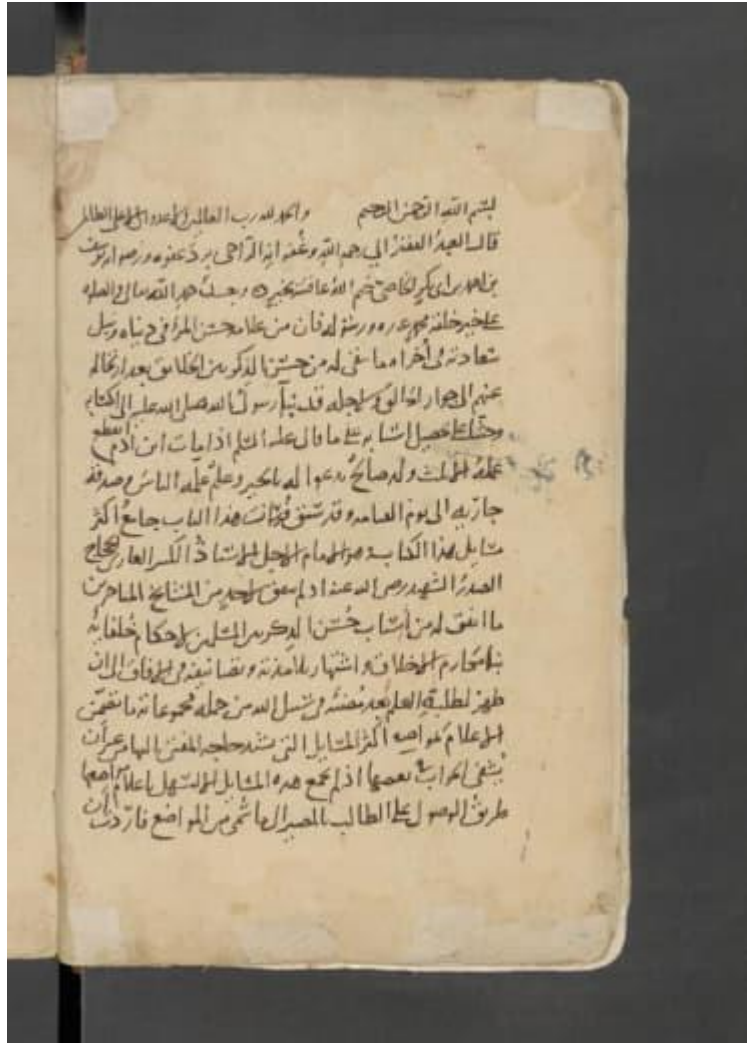 بسم الله الرحمن الرحيم والحمد لله رب العالمين ولا عدوان الا على الظالم
قال العبد الفقير الى رحمة الله وغفرانه الراجى برد عفوه ورضوانه يوسف
بن احمد بن ابى بكر الخاصى ختم الله عاقبته بخير وبعد حمد الله تعالى والصلوة
على خير خلقه محمد عبده ورسوله فان من علامة حسن المرء فى دنياه ونيل
سعادته فى اخراه ما بقى له من حسن الذكر بين الخلايق بعد ارتحاله
عنهم الى جوار الخالق ولاجله قد نبا رسول الله صلى الله عليه الى اكتسابه
وحثنا على تحصيل اسبابه على ما قال عليه السلم اذا مات ابن ادم انقطع
عمله الا من ثلث ولد صالح يدعوا له بالخير وعلم علمه الناس وصدقة
جارية الى يوم القيامة وقد سبق فى هذا الباب جامع اكثر
مسايل هذا الكتاب وهو الامام الاجل الاستاذ الكبير الحجاج
الصدر الشهيد رضى الله عنه اذ لم يتفق لاحد من المشايخ المتاخرين
ما اتفق له من اسباب حسن الذكر بين المسلمين لاحكام خلفائه
بمكارم الاخلاق واشتهار تلامذته وتصانيفه فى الافاق الى ان
ظهر لطلبة العلم بعد مضيه فى سبيل الله من جملة مجموعاته ما تضمن
الاعلام بمواضع اكثر المسايل التى تشتد حاجة المفتى اليها من غير ان
يشفى الجواب بعضها اذ لم يجمع هذه المسايل الا لتسهل باعلام مواضعها
طريق الوصول على الطالب بالمصير الى ما سمى من المواضع فاردت ان